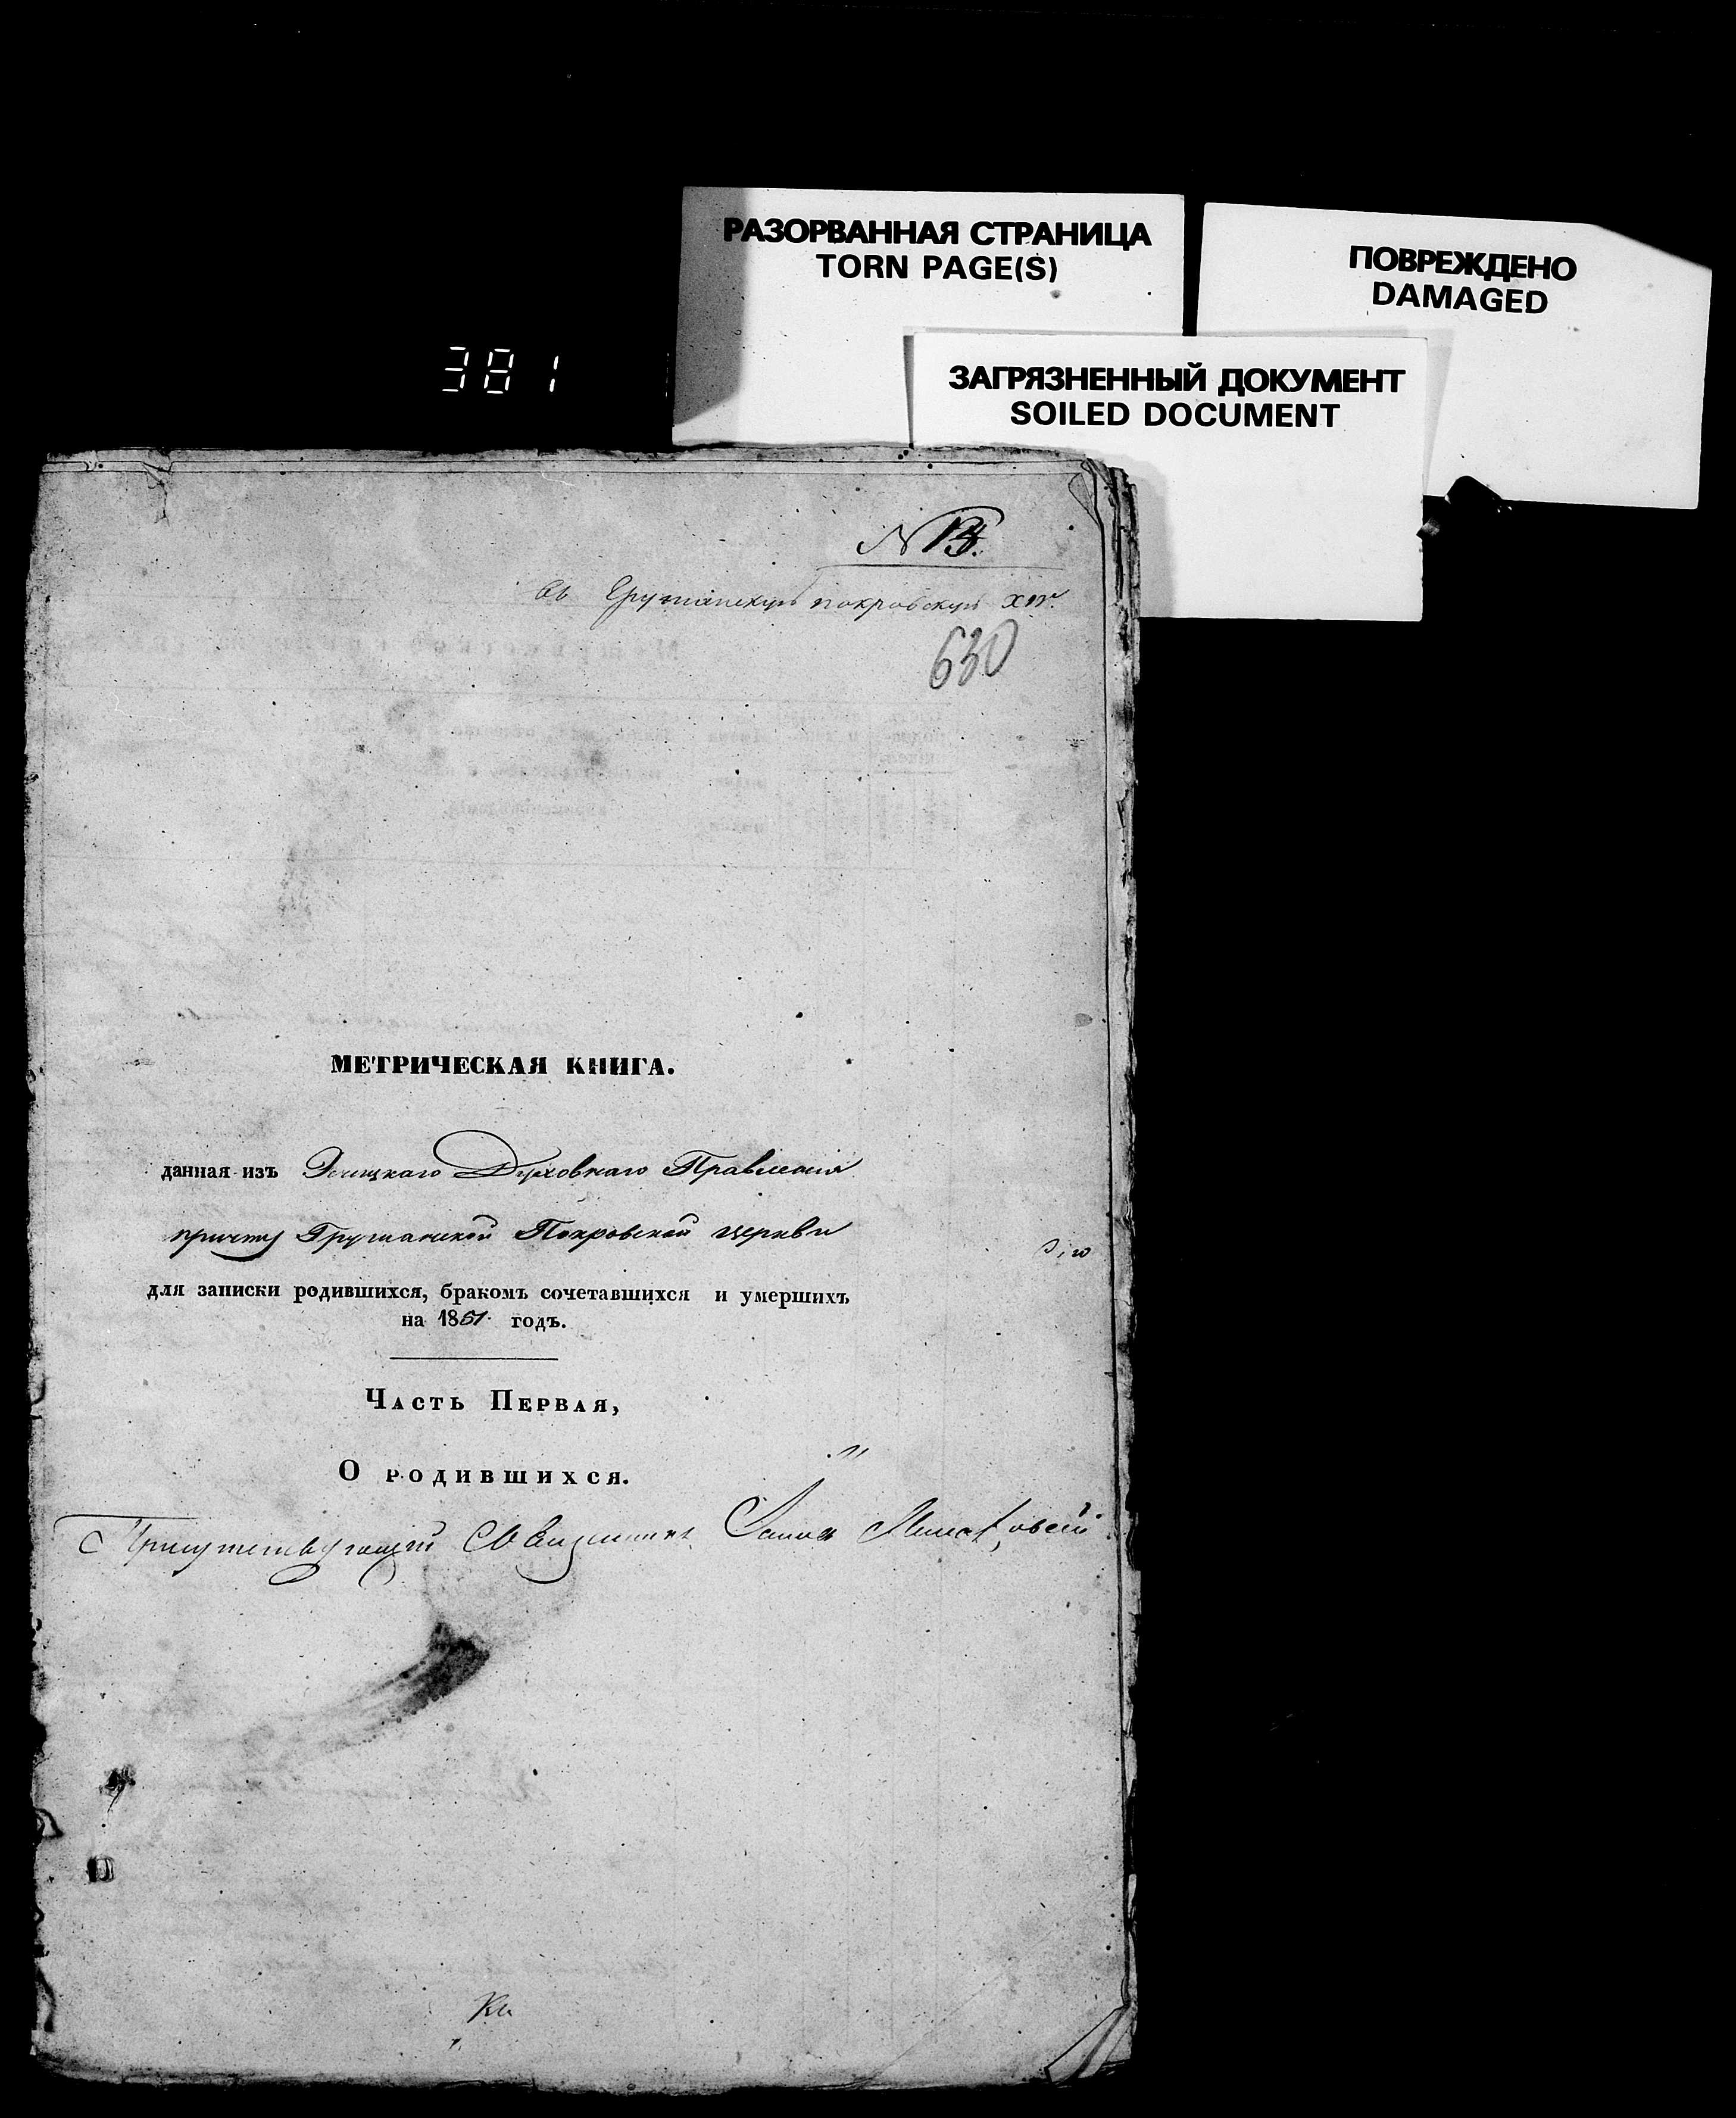 РАЗОРВАННАЯ СТРАНИЦА
TORN PAGE(S)
ПОВРЕЖДЕНО
DAMAGED
ЗАГРЯЗНЕННЫЙ ДОКУМЕНТ
SOILED DOCUMENT
381
N
въ Грушанскую покровскую
630
МЕТРИЧЕСКАЯ КНИГА.
данная изъ Духовнаго Правленія
причту Грушанской Покровской церкви
для записки родившихся, бракомъ сочетавшихся и умершихъ
на 1851 годъ.
Часть Первая,
О родившихся.
Присутствующій Священникъ